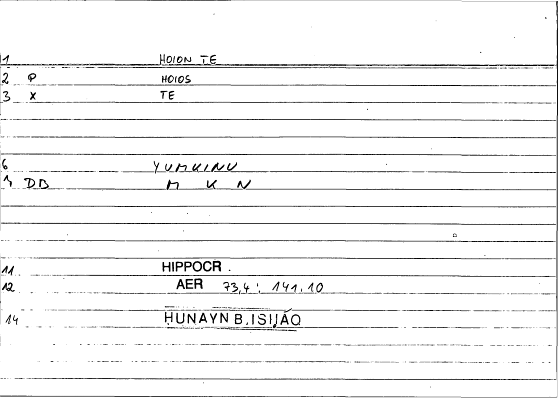 1 HOION TE
2 P HOIOS
3 X TE
6 YUMKINU
7 DB M K N
11 HIPPOCR.
12 AER 73,4: 141.10
14 ḤUNAYN B.ISḤĀQ